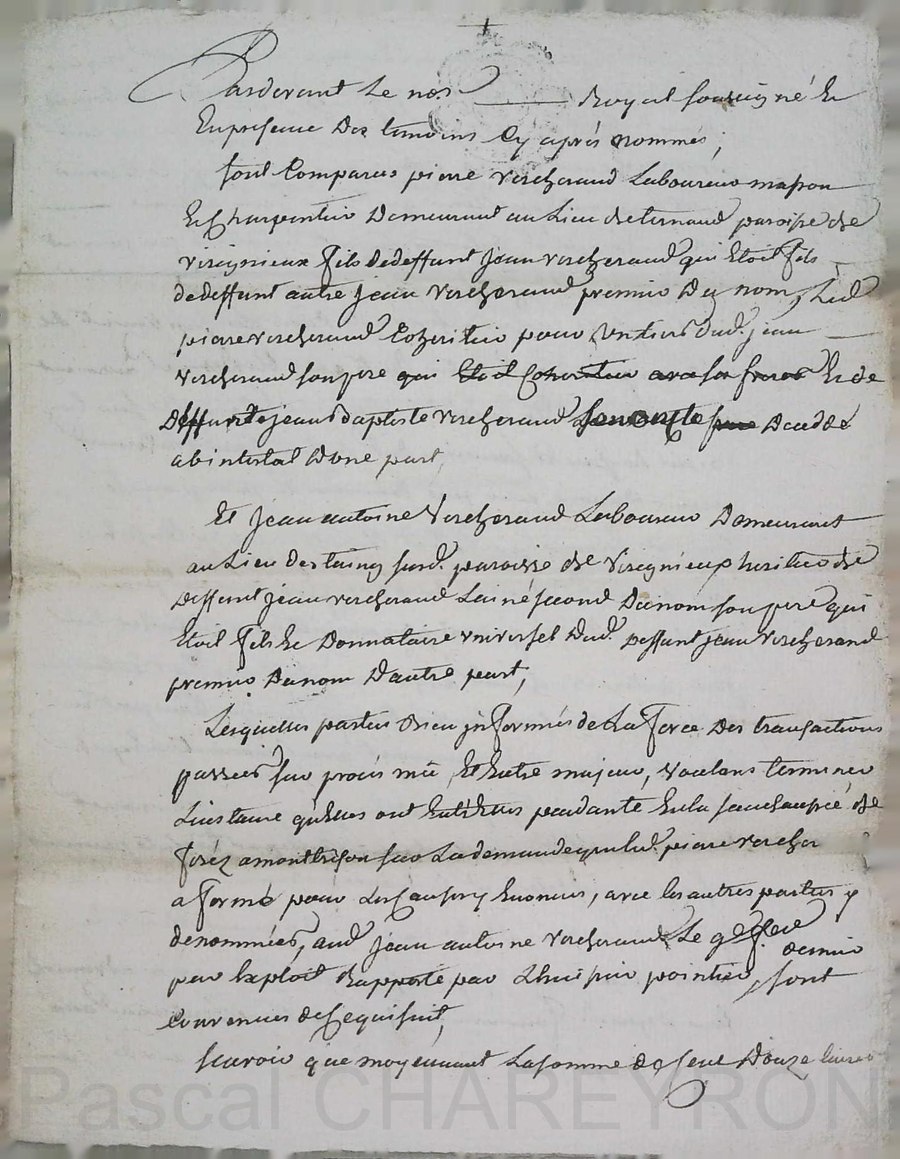 Pardevant Le no.re Royal soussigné Et
En presence Des temoins Cy après nommés,
sont Comparus pierre Vercherand Laboureur masson
Et Charpentier Demeurant au Lieu de ternaud paroisse de
virignieux fils de deffunt jean vercherand qui Etoit fils
de deffunt autre jean Vercherand premier Du nom, Led.
pierre vercherand Coheritier pour Un tiers dud. jean
vercherand son pere qui Etoit Coheritier avec ses freres Et de
Deffunt jean Baptiste vercherand son oncle Decedé
abintestat D'une part,
Et jean antoine Vercherand Laboureur Demeurant
au Lieu Destaing susd. paroisse de Virignieux heritier de
Deffunt jean vercherand Lainé second Du nom son pere qui
Etoit fils Et Donnataire universel Dud. Deffunt jean Vercherand
premier Du nom D'autre part,
Lesquelles parties Bien informées de La force Des transactions
passées sur procès mû, Et Entre majeur, voulans terminer
L'instance qu'elles ont Entr'elles pendante En la senechaussée de
forêz a montbrison sur La demande que led. pierre vercher
a formé pour Les Causes y Enoncées, avec les autres parties y
denommées, aud. jean antoine vercherand Le dernier
par Exploit Rapporté par L'huissier pointier, sont
Convenues de Ce qui suit,
scavoir que moyennant La somme de Cent Douze livres
Pascal CHAREYRON